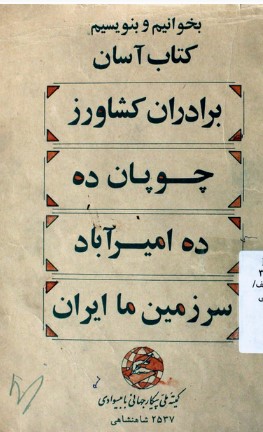 بخوانیم و بنویسیم
کتاب آسان
برادران کشاورز
چوپان ده
ده امیرآباد
سرزمین ما ایران
کمیتهٔ ملی پیکار جهانی با بیسوادی
۲۵۳۷ شاهنشاهی